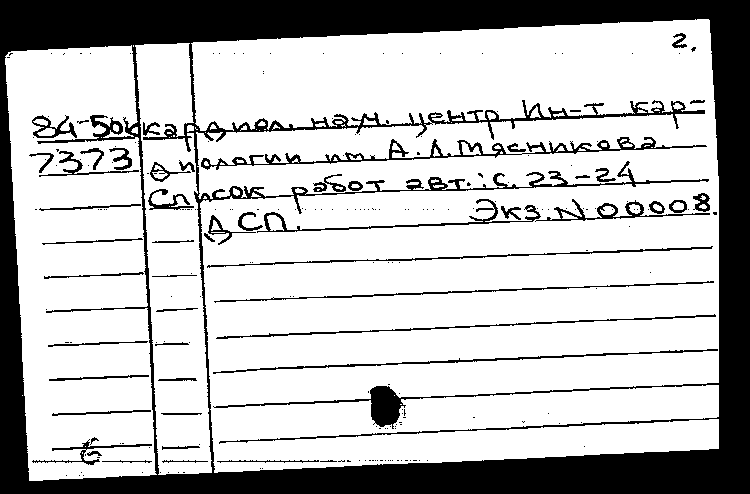 2.
84-50к кардиол. науч. центр, Ин-т кар-
7373 диологии им. А.Л.Мясникова.
Список работ авт.: с. 23-24.
ДСП. Экз. N 00008.
6